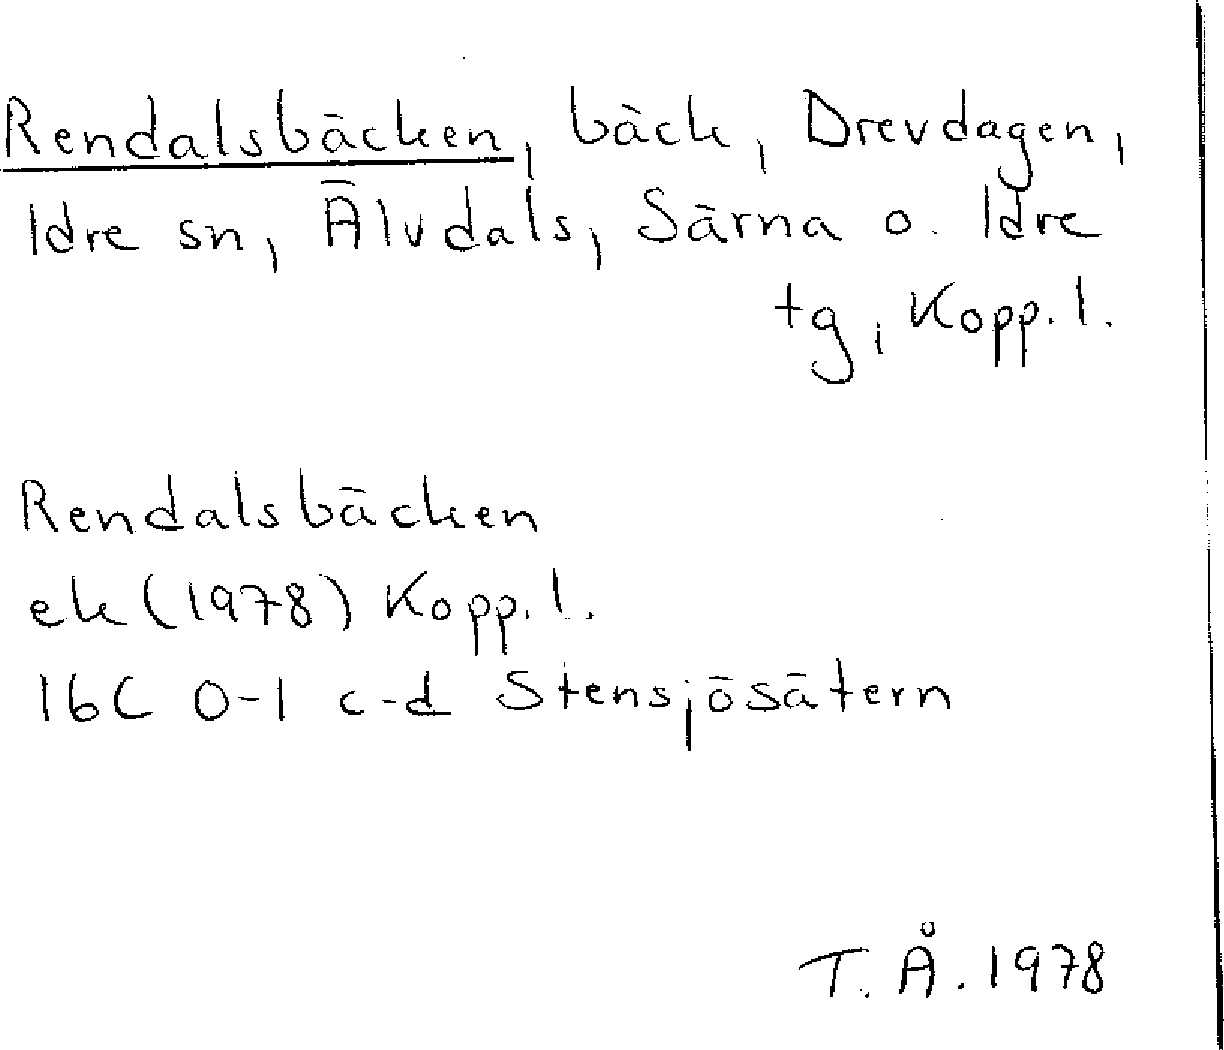 Rendalsbäcken, bäck, Drevdagen,
Idre sn, Älvdals, Särna o. Idre
tg, Kopp. l.
Rendalsbäcken
ek (1978) Kopp. l.
16C 0-1 c-d Stensjösätern
T. Å. 1978